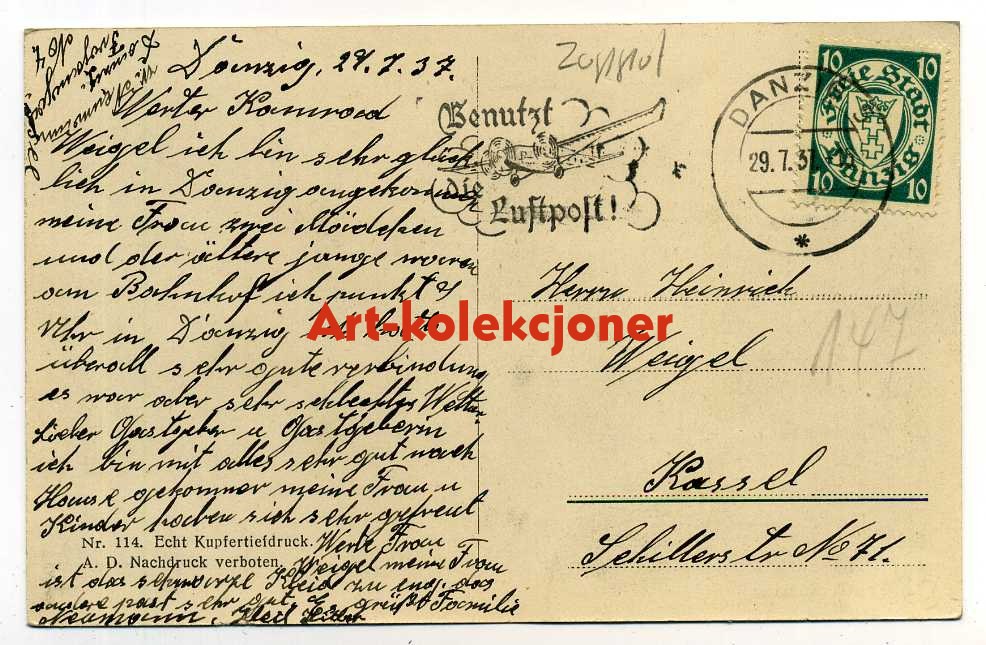 Danzig, 29.7.37.
Werter Kamerad
Weigel ich bin sehr glück
lich in Danzig angekomm
meine Frau zwei Mädchen
und der ältere junge waren
am Bahnhof ich punkt 9
Uhr in Danzig ich hatte
überall sehr gute verbindung
es war aber sehr schlechtes Wetter
Lieber Gastgeber u Gastgeberin
ich bin mit alles sehr gut nach
Hause gekommen meine Frau u
Kinder haben sich sehr gefreut
Nr. 114. Echt Kupfertiefdruck.
A. D. Nachdruck verboten.
Werte Frau
Weigel meine Frau
ist das schwarze Kleid zu eng das
andere past sehr gut. Es grüßt Familie
Neumann. Heil Hitler
Benutzt
die
Luftpost!
DANZIG
29.7.37
10 10
Freie Stadt
Danzig
10 10
Herrn Heinrich
Weigel
Kassel
Schillerstr No 71.
147
Art-kolekcjoner